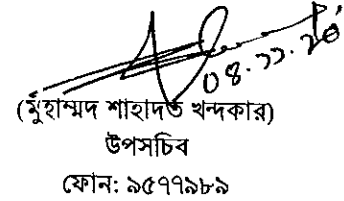 ০৪.১১.২০
(মুহাম্মদ শাহাদত খন্দকার)
উপসচিব
ফোন: ৯৫৭৭৯৮৯